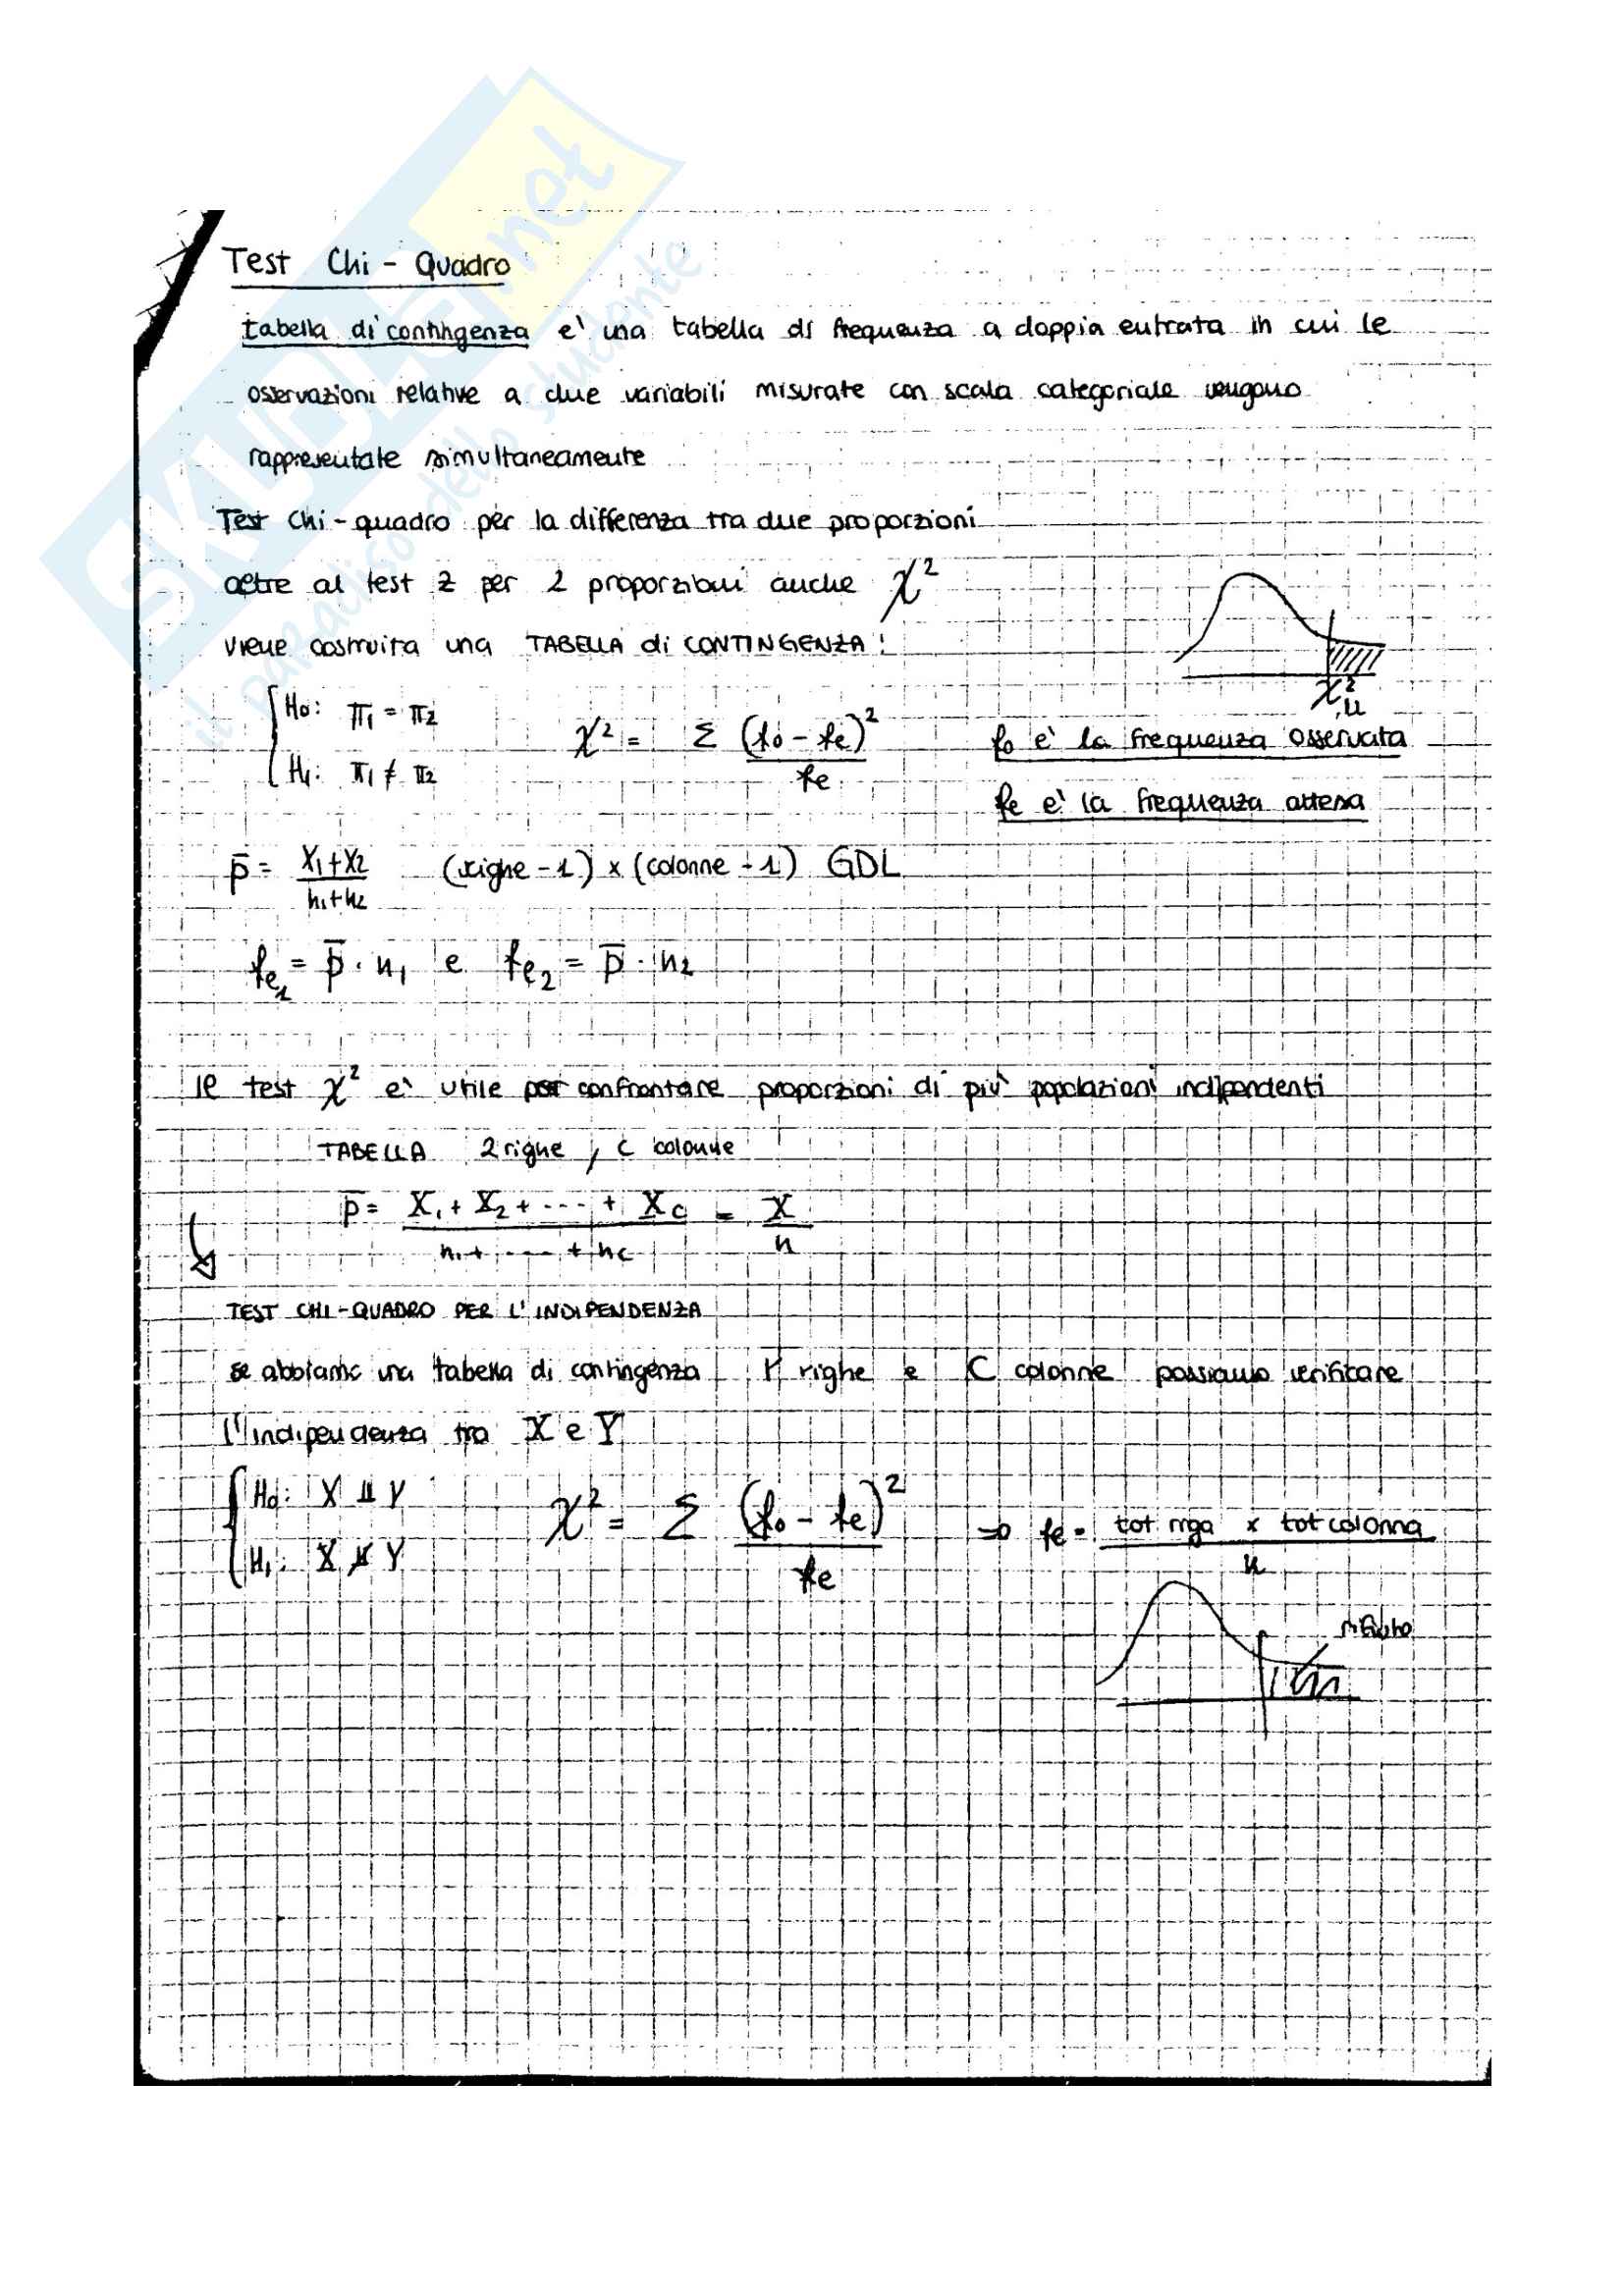 SKUOLA.net
il paradiso dello studente
Test Chi - Quadro
tabella di contingenza e' una tabella di frequenza a doppia entrata in cui le
osservazioni relative a due variabili misurate con scala categoriale vengono
rappresentate simultaneamente
Test Chi-quadro per la differenza tra due proporzioni
oltre al test z per 2 proporzioni anche χ²
viene costruita una TABELLA di CONTINGENZA!
H0: π1 = π2
H1: π1 ≠ π2
χ² = Σ (fo - fe)² / fe
χ²u
fo e' la frequenza osservata
fe e' la frequenza attesa
p̄ = X1+X2 / n1+n2 (righe -1) x (colonne -1) GDL
fe1 = p̄ · n1 e fe2 = p̄ · n2
Il test χ² e' utile per confrontare proporzioni di piu' popolazioni indipendenti
TABELLA 2 righe, C colonne
p̄ = X1 + X2 + ... + Xc / n1 + ... + nc = X / n
TEST CHI-QUADRO PER L'INDIPENDENZA
se abbiamo una tabella di contingenza r righe e C colonne possiamo verificare
l'indipendenza tra X e Y
H0: X ⫫ Y
H1: X ⫫̸ Y
χ² = Σ (fo - fe)² / fe => fe = tot riga x tot colonna / n
rifiuto